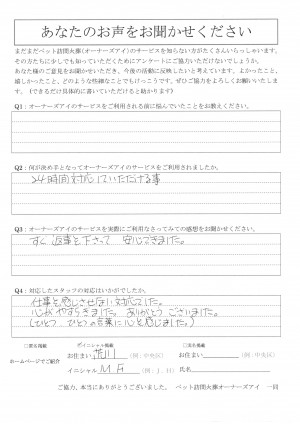 あなたのお声をお聞かせください
まだまだペット訪問火葬(オーナーズアイ)のサービスを知らない方がたくさんいらっしゃいます。
その方たちに少しでも知っていただくためにアンケートにご協力いただけないでしょうか。
あなた様のご意見をお聞かせいただき、今後の活動に反映したいと考えています。よかったこと、
嬉しかったこと、どのような些細なことでもけっこうです。ぜひご協力をよろしくお願いいたしま
す。（できるだけ具体的に書いていただけると助かります）
Q1：オーナーズアイのサービスをご利用される前に悩んでいたことをお教えください。
Q2：何が決め手となってオーナーズアイのサービスをご利用されましたか。
24時間対応していただける事
Q3：オーナーズアイのサービスを実際にご利用なさってみての感想をお聞かせください。
すぐ返事を下さって 安心できました。
Q4：対応したスタッフの対応はいかがでしたか。
仕事を感じさせない対応でした。
心がやすらぎました。ありがとうございました。
(ひとつ ひとつの言葉に心を感じました)
□匿名掲載 イニシャル掲載 □実名掲載
ホームページでご紹介
お住まい 荒川 (例：中央区) お住まい (例：中央区)
イニシャル M.F (例：J．H) 氏名
ご協力、本当にありがとうございました。 ペット訪問火葬オーナーズアイ 一同